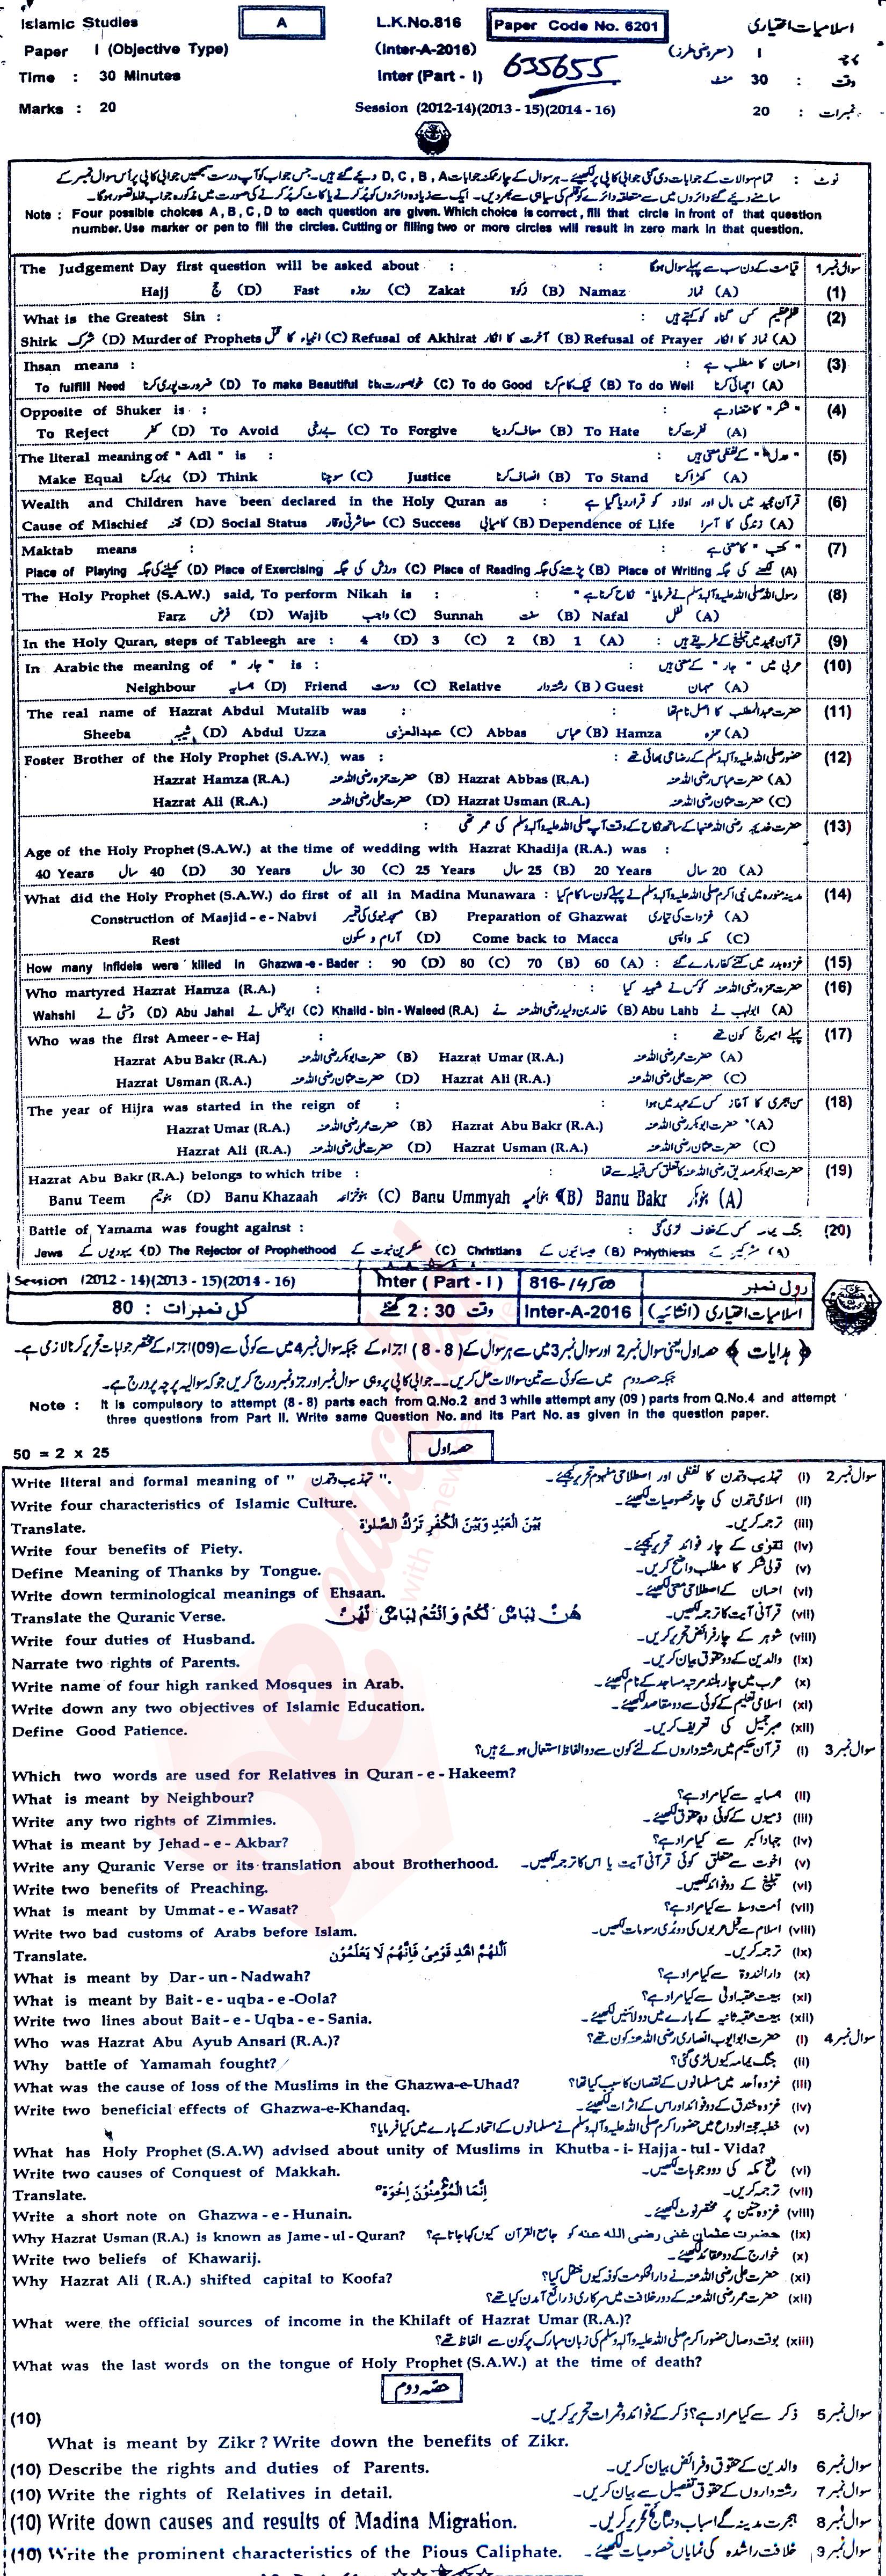 Islamic Studies A L.K.No.816 Paper Code No. 6201 اسلامیات اختیاری
Paper I (Objective Type) (Inter-A-2016) I (معروضی طرز) پرچہ
Time : 30 Minutes Inter (Part - I) 635655 وقت : 30 منٹ
Marks : 20 Session (2012-14)(2013 - 15)(2014 - 16) نمبرات : 20
نوٹ : تمام سوالات کے جوابات دی گئی جوابی کاپی پر لکھیئے ۔ ہر سوال کے چار ممکنہ جوابات D, C, B, A دیئے گئے ہیں۔ جس جواب کو آپ درست سمجھیں جوابی کاپی پر اُس سوال نمبر کے
سامنے دیئے گئے دائروں میں سے متعلقہ دائرے کو قلم کی سیاہی سے بھر دیں۔ ایک سے زیادہ دائروں کو پُر کرنے یا کاٹ کر پُر کرنے کی صورت میں مذکورہ جواب غلط تصور ہوگا۔
Note : Four possible choices A, B, C, D to each question are given. Which choice is correct, fill that circle in front of that question
number. Use marker or pen to fill the circles. Cutting or filling two or more circles will result in zero mark in that question.
The Judgement Day first question will be asked about : : قیامت کے دن سب سے پہلے سوال ہوگا سوال نمبر 1
Hajj حج (D) Fast روزہ (C) Zakat زکوٰۃ (B) Namaz نماز (A) (1)
What is the Greatest Sin : : ظلم عظیم کس گناہ کو کہتے ہیں (2)
Shirk شرک (D) Murder of Prophets انبیاء کا قتل (C) Refusal of Akhirat آخرت کا انکار (B) Refusal of Prayer نماز کا انکار (A)
Ihsan means : : احسان کا مطلب ہے (3)
To fulfill Need ضرورت پوری کرنا (D) To make Beautiful خوبصورت بنانا (C) To do Good نیک کام کرنا (B) To do Well اچھائی کرنا (A)
Opposite of Shuker is : : "شکر" کا متضاد ہے (4)
To Reject کفر (D) To Avoid بے رخی (C) To Forgive معاف کر دینا (B) To Hate نفرت کرنا (A)
The literal meaning of " Adl " is : : "عدل" کے لفظی معنی ہیں (5)
Make Equal برابر کرنا (D) Think سوچنا (C) Justice انصاف کرنا (B) To Stand کھڑا کرنا (A)
Wealth and Children have been declared in the Holy Quran as : قرآن مجید میں مال اور اولاد کو قرار دیا گیا ہے (6)
Cause of Mischief فتنہ (D) Social Status معاشرتی وقار (C) Success کامیابی (B) Dependence of Life زندگی کا آسرا (A)
Maktab means : : "مکتب" کا معنی ہے (7)
Place of Playing کھیلنے کی جگہ (D) Place of Exercising ورزش کی جگہ (C) Place of Reading پڑھنے کی جگہ (B) Place of Writing لکھنے کی جگہ (A)
The Holy Prophet (S.A.W.) said, To perform Nikah is : : رسول اللہ صلی اللہ علیہ وآلہ وسلم نے فرمایا "نکاح کرنا ہے" (8)
Farz فرض (D) Wajib واجب (C) Sunnah سنت (B) Nafal نفل (A)
In the Holy Quran, steps of Tableegh are : 4 (D) 3 (C) 2 (B) 1 (A) : قرآن مجید میں تبلیغ کے طریقے ہیں (9)
In Arabic the meaning of " جار " is : : عربی میں "جار" کے معنی ہیں (10)
Neighbour ہمسایہ (D) Friend دوست (C) Relative رشتہ دار (B) Guest مہمان (A)
The real name of Hazrat Abdul Mutalib was : : حضرت عبدالمطلب کا اصل نام تھا (11)
Sheeba شیبہ (D) Abdul Uzza عبدالعزٰی (C) Abbas عباس (B) Hamza حمزہ (A)
Foster Brother of the Holy Prophet (S.A.W.) was : : حضور صلی اللہ علیہ وآلہ وسلم کے رضاعی بھائی تھے (12)
Hazrat Hamza (R.A.) حضرت حمزہ رضی اللہ عنہ (B) Hazrat Abbas (R.A.) حضرت عباس رضی اللہ عنہ (A)
Hazrat Ali (R.A.) حضرت علی رضی اللہ عنہ (D) Hazrat Usman (R.A.) حضرت عثمان رضی اللہ عنہ (C)
: حضرت خدیجہ رضی اللہ عنہا کے ساتھ نکاح کے وقت آپ صلی اللہ علیہ وآلہ وسلم کی عمر تھی (13)
Age of the Holy Prophet (S.A.W.) at the time of wedding with Hazrat Khadija (R.A.) was :
40 Years 40 سال (D) 30 Years 30 سال (C) 25 Years 25 سال (B) 20 Years 20 سال (A)
What did the Holy Prophet (S.A.W.) do first of all in Madina Munawara : مدینہ منورہ میں نبی اکرم صلی اللہ علیہ وآلہ وسلم نے پہلے کون سا کام کیا (14)
Construction of Masjid - e - Nabvi مسجد نبوی کی تعمیر (B) Preparation of Ghazwat غزوات کی تیاری (A)
Rest آرام و سکون (D) Come back to Macca مکہ واپسی (C)
How many Infidels were killed in Ghazwa - e - Bader : 90 (D) 80 (C) 70 (B) 60 (A) : غزوہ بدر میں کتنے کفار مارے گئے (15)
Who martyred Hazrat Hamza (R.A.) : : حضرت حمزہ رضی اللہ عنہ کو کس نے شہید کیا (16)
Wahshi وحشی نے (D) Abu Jahal ابوجہل نے (C) Khalid - bin - Waleed (R.A.) خالد بن ولید رضی اللہ عنہ نے (B) Abu Lahb ابولہب نے (A)
Who was the first Ameer - e - Haj : : پہلے امیر حج کون تھے (17)
Hazrat Abu Bakr (R.A.) حضرت ابوبکر رضی اللہ عنہ (B) Hazrat Umar (R.A.) حضرت عمر رضی اللہ عنہ (A)
Hazrat Usman (R.A.) حضرت عثمان رضی اللہ عنہ (D) Hazrat Ali (R.A.) حضرت علی رضی اللہ عنہ (C)
The year of Hijra was started in the reign of : : سن ہجری کا آغاز کس کے عہد میں ہوا (18)
Hazrat Umar (R.A.) حضرت عمر رضی اللہ عنہ (B) Hazrat Abu Bakr (R.A.) حضرت ابوبکر رضی اللہ عنہ (A)
Hazrat Ali (R.A.) حضرت علی رضی اللہ عنہ (D) Hazrat Usman (R.A.) حضرت عثمان رضی اللہ عنہ (C)
Hazrat Abu Bakr (R.A.) belongs to which tribe : : حضرت ابوبکر صدیق رضی اللہ عنہ کا تعلق کس قبیلہ سے تھا (19)
Banu Teem بنو تیم (D) Banu Khazaah بنو خزاعہ (C) Banu Ummyah بنو امیہ (B) Banu Bakr بنو بکر (A)
Battle of Yamama was fought against : : جنگ یمامہ کس کے خلاف لڑی گئی (20)
Jews یہودیوں کے (D) The Rejector of Prophethood منکرین نبوت کے (C) Christians عیسائیوں کے (B) Polythiests مشرکین کے (A)
Session (2012 - 14)(2013 - 15)(2014 - 16) Inter ( Part - I ) 816-14500 رول نمبر
کل نمبرات : 80 وقت 2 : 30 گھنٹے Inter-A-2016 اسلامیات اختیاری (انشائیہ)
﴿ ہدایات ﴾ حصہ اول یعنی سوال نمبر 2 اور سوال نمبر 3 میں سے ہر سوال کے (8 - 8) اجزاء کے جبکہ سوال نمبر 4 میں سے کوئی سے (09) اجزاء کے مختصر جوابات تحریر کرنا لازمی ہے۔
جبکہ حصہ دوم میں سے کوئی سے تین سوالات حل کریں۔۔ جوابی کاپی پر وہی سوال نمبر اور جزو نمبر درج کریں جو کہ سوالیہ پرچہ پر درج ہے۔
Note : It is compulsory to attempt (8 - 8) parts each from Q.No.2 and 3 while attempt any (09) parts from Q.No.4 and attempt
three questions from Part II. Write same Question No. and its Part No. as given in the question paper.
50 = 2 x 25 حصہ اول
Write literal and formal meaning of " تہذیب و تمدن ". تہذیب و تمدن کا لفظی اور اصطلاحی مفہوم تحریر کیجئے۔ (i) سوال نمبر 2
Write four characteristics of Islamic Culture. اسلامی تمدن کی چار خصوصیات لکھیئے۔ (ii)
Translate. بَيْنَ الْعَبْدِ وَبَيْنَ الْكُفْرِ تَرْكُ الصَّلٰوةِ ترجمہ کریں۔ (iii)
Write four benefits of Piety. تقویٰ کے چار فوائد تحریر کیجئے۔ (iv)
Define Meaning of Thanks by Tongue. قولی شکر کا مطلب واضح کریں۔ (v)
Write down terminological meanings of Ehsaan. احسان کے اصطلاحی معنی لکھیئے۔ (vi)
Translate the Quranic Verse. هُنَّ لِبَاسٌ لَّكُمْ وَاَنْتُمْ لِبَاسٌ لَّهُنَّ قرآنی آیت کا ترجمہ لکھیں۔ (vii)
Write four duties of Husband. شوہر کے چار فرائض تحریر کریں۔ (viii)
Narrate two rights of Parents. والدین کے دو حقوق بیان کریں۔ (ix)
Write name of four high ranked Mosques in Arab. عرب میں چار بلند مرتبہ مساجد کے نام لکھیئے۔ (x)
Write down any two objectives of Islamic Education. اسلامی تعلیم کے کوئی سے دو مقاصد لکھیئے۔ (xi)
Define Good Patience. صبر جمیل کی تعریف کریں۔ (xii)
قرآن حکیم میں رشتہ داروں کے لئے کون سے دو الفاظ استعمال ہوئے ہیں؟ (i) سوال نمبر 3
Which two words are used for Relatives in Quran - e - Hakeem?
What is meant by Neighbour? ہمسایہ سے کیا مراد ہے؟ (ii)
Write any two rights of Zimmies. ذمیوں کے کوئی دو حقوق لکھیئے۔ (iii)
What is meant by Jehad - e - Akbar? جہاد اکبر سے کیا مراد ہے؟ (iv)
Write any Quranic Verse or its translation about Brotherhood. اخوت سے متعلق کوئی قرآنی آیت یا اس کا ترجمہ لکھیں۔ (v)
Write two benefits of Preaching. تبلیغ کے دو فوائد لکھیں۔ (vi)
What is meant by Ummat - e - Wasat? اُمت وسط سے کیا مراد ہے؟ (vii)
Write two bad customs of Arabs before Islam. اسلام سے قبل عربوں کی دو بُری رسومات لکھیں۔ (viii)
Translate. اَللّٰهُمَّ اهْدِ قَوْمِيْ فَاِنَّهُمْ لَا يَعْلَمُوْن ترجمہ کریں۔ (ix)
What is meant by Dar - un - Nadwah? دارالندوۃ سے کیا مراد ہے؟ (x)
What is meant by Bait - e - uqba - e - Oola? بیعت عقبہ اولیٰ سے کیا مراد ہے؟ (xi)
Write two lines about Bait - e - Uqba - e - Sania. بیعت عقبہ ثانیہ کے بارے میں دو لائنیں لکھیئے۔ (xii)
Who was Hazrat Abu Ayub Ansari (R.A.)? حضرت ابو ایوب انصاری رضی اللہ عنہ کون تھے؟ (i) سوال نمبر 4
Why battle of Yamamah fought? جنگ یمامہ کیوں لڑی گئی؟ (ii)
What was the cause of loss of the Muslims in the Ghazwa-e-Uhad? غزوہ اُحد میں مسلمانوں کے نقصان کا سبب کیا تھا؟ (iii)
Write two beneficial effects of Ghazwa-e-Khandaq. غزوہ خندق کے دو فوائد اور اس کے اثرات لکھیئے۔ (iv)
خطبہ حجۃ الوداع میں حضور اکرم صلی اللہ علیہ وآلہ وسلم نے مسلمانوں کے اتحاد کے بارے میں کیا فرمایا؟ (v)
What has Holy Prophet (S.A.W) advised about unity of Muslims in Khutba - i - Hajja - tul - Vida?
Write two causes of Conquest of Makkah. فتح مکہ کی دو وجوہات لکھیں۔ (vi)
Translate. اِنَّمَا الْمُؤْمِنُوْنَ اِخْوَةٌ ترجمہ کریں۔ (vii)
Write a short note on Ghazwa - e - Hunain. غزوہ حنین پر مختصر نوٹ لکھیئے۔ (viii)
Why Hazrat Usman (R.A.) is known as Jame - ul - Quran? حضرت عثمان غنی رضی اللہ عنہ کو جامع القرآن کیوں کہا جاتا ہے؟ (ix)
Write two beliefs of Khawarij. خوارج کے دو عقائد لکھیئے۔ (x)
Why Hazrat Ali ( R.A.) shifted capital to Koofa? حضرت علی رضی اللہ عنہ نے دارالحکومت کوفہ کیوں منتقل کیا؟ (xi)
حضرت عمر رضی اللہ عنہ کے دور خلافت میں سرکاری ذرائع آمدن کیا تھے؟ (xii)
What were the official sources of income in the Khilaft of Hazrat Umar (R.A.)?
بوقت وصال حضور اکرم صلی اللہ علیہ وآلہ وسلم کی زبان مبارک پر کون سے الفاظ تھے؟ (xiii)
What was the last words on the tongue of Holy Prophet (S.A.W.) at the time of death?
حصہ دوم
(10) ذکر سے کیا مراد ہے؟ ذکر کے فوائد و ثمرات تحریر کریں۔ سوال نمبر 5
What is meant by Zikr ? Write down the benefits of Zikr.
(10) Describe the rights and duties of Parents. والدین کے حقوق و فرائض بیان کریں۔ سوال نمبر 6
(10) Write the rights of Relatives in detail. رشتہ داروں کے حقوق تفصیل سے بیان کریں۔ سوال نمبر 7
(10) Write down causes and results of Madina Migration. ہجرت مدینہ کے اسباب و نتائج تحریر کریں۔ سوال نمبر 8
(10) Write the prominent characteristics of the Pious Caliphate. خلافت راشدہ کی نمایاں خصوصیات لکھیئے۔ سوال نمبر 9